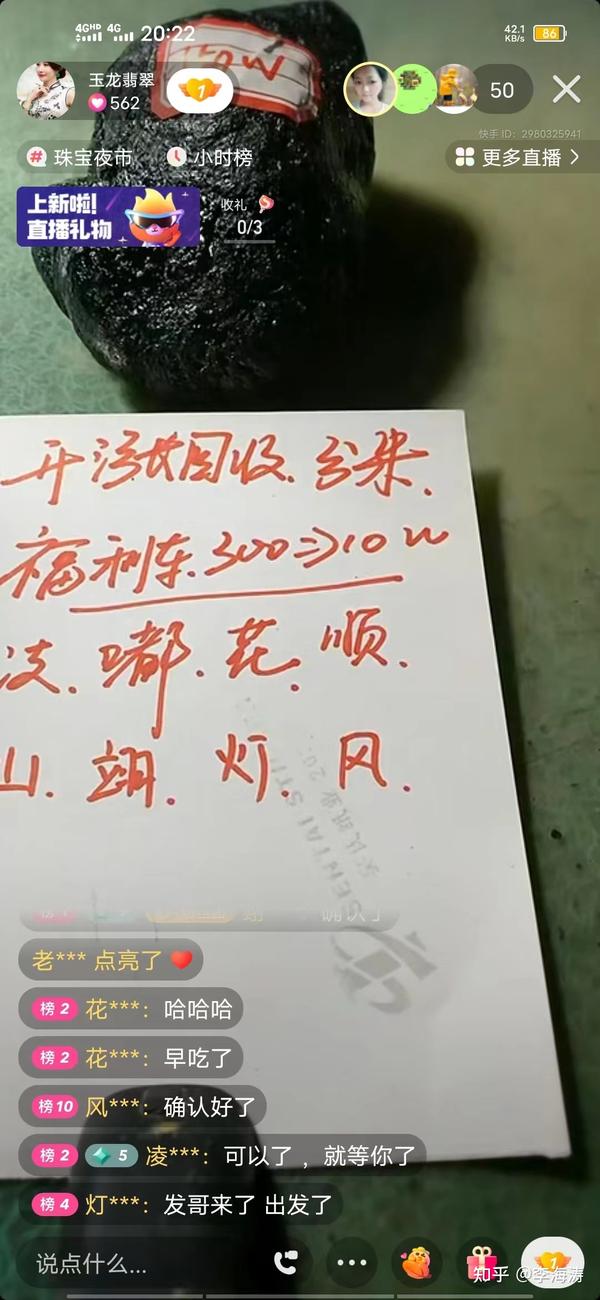 4GHD 4G 20:22 42.1 KB/s 86
10W
玉龙翡翠
562
1
50
快手 ID: 2980325941
珠宝夜市 小时榜 更多直播
上新啦!
直播礼物
收礼
0/3
开涨大回收.分米.
福利车.300⇒10w
凌.嘟.花.顺.
山.翊.灯.风.
SENTAI
确认了
老*** 点亮了
榜2 花***: 哈哈哈
榜2 花***: 早吃了
榜10 风***: 确认好了
榜2 5 凌***: 可以了 ，就等你了
榜4 灯***: 发哥来了 出发了
说点什么...
1
知乎 @李海涛